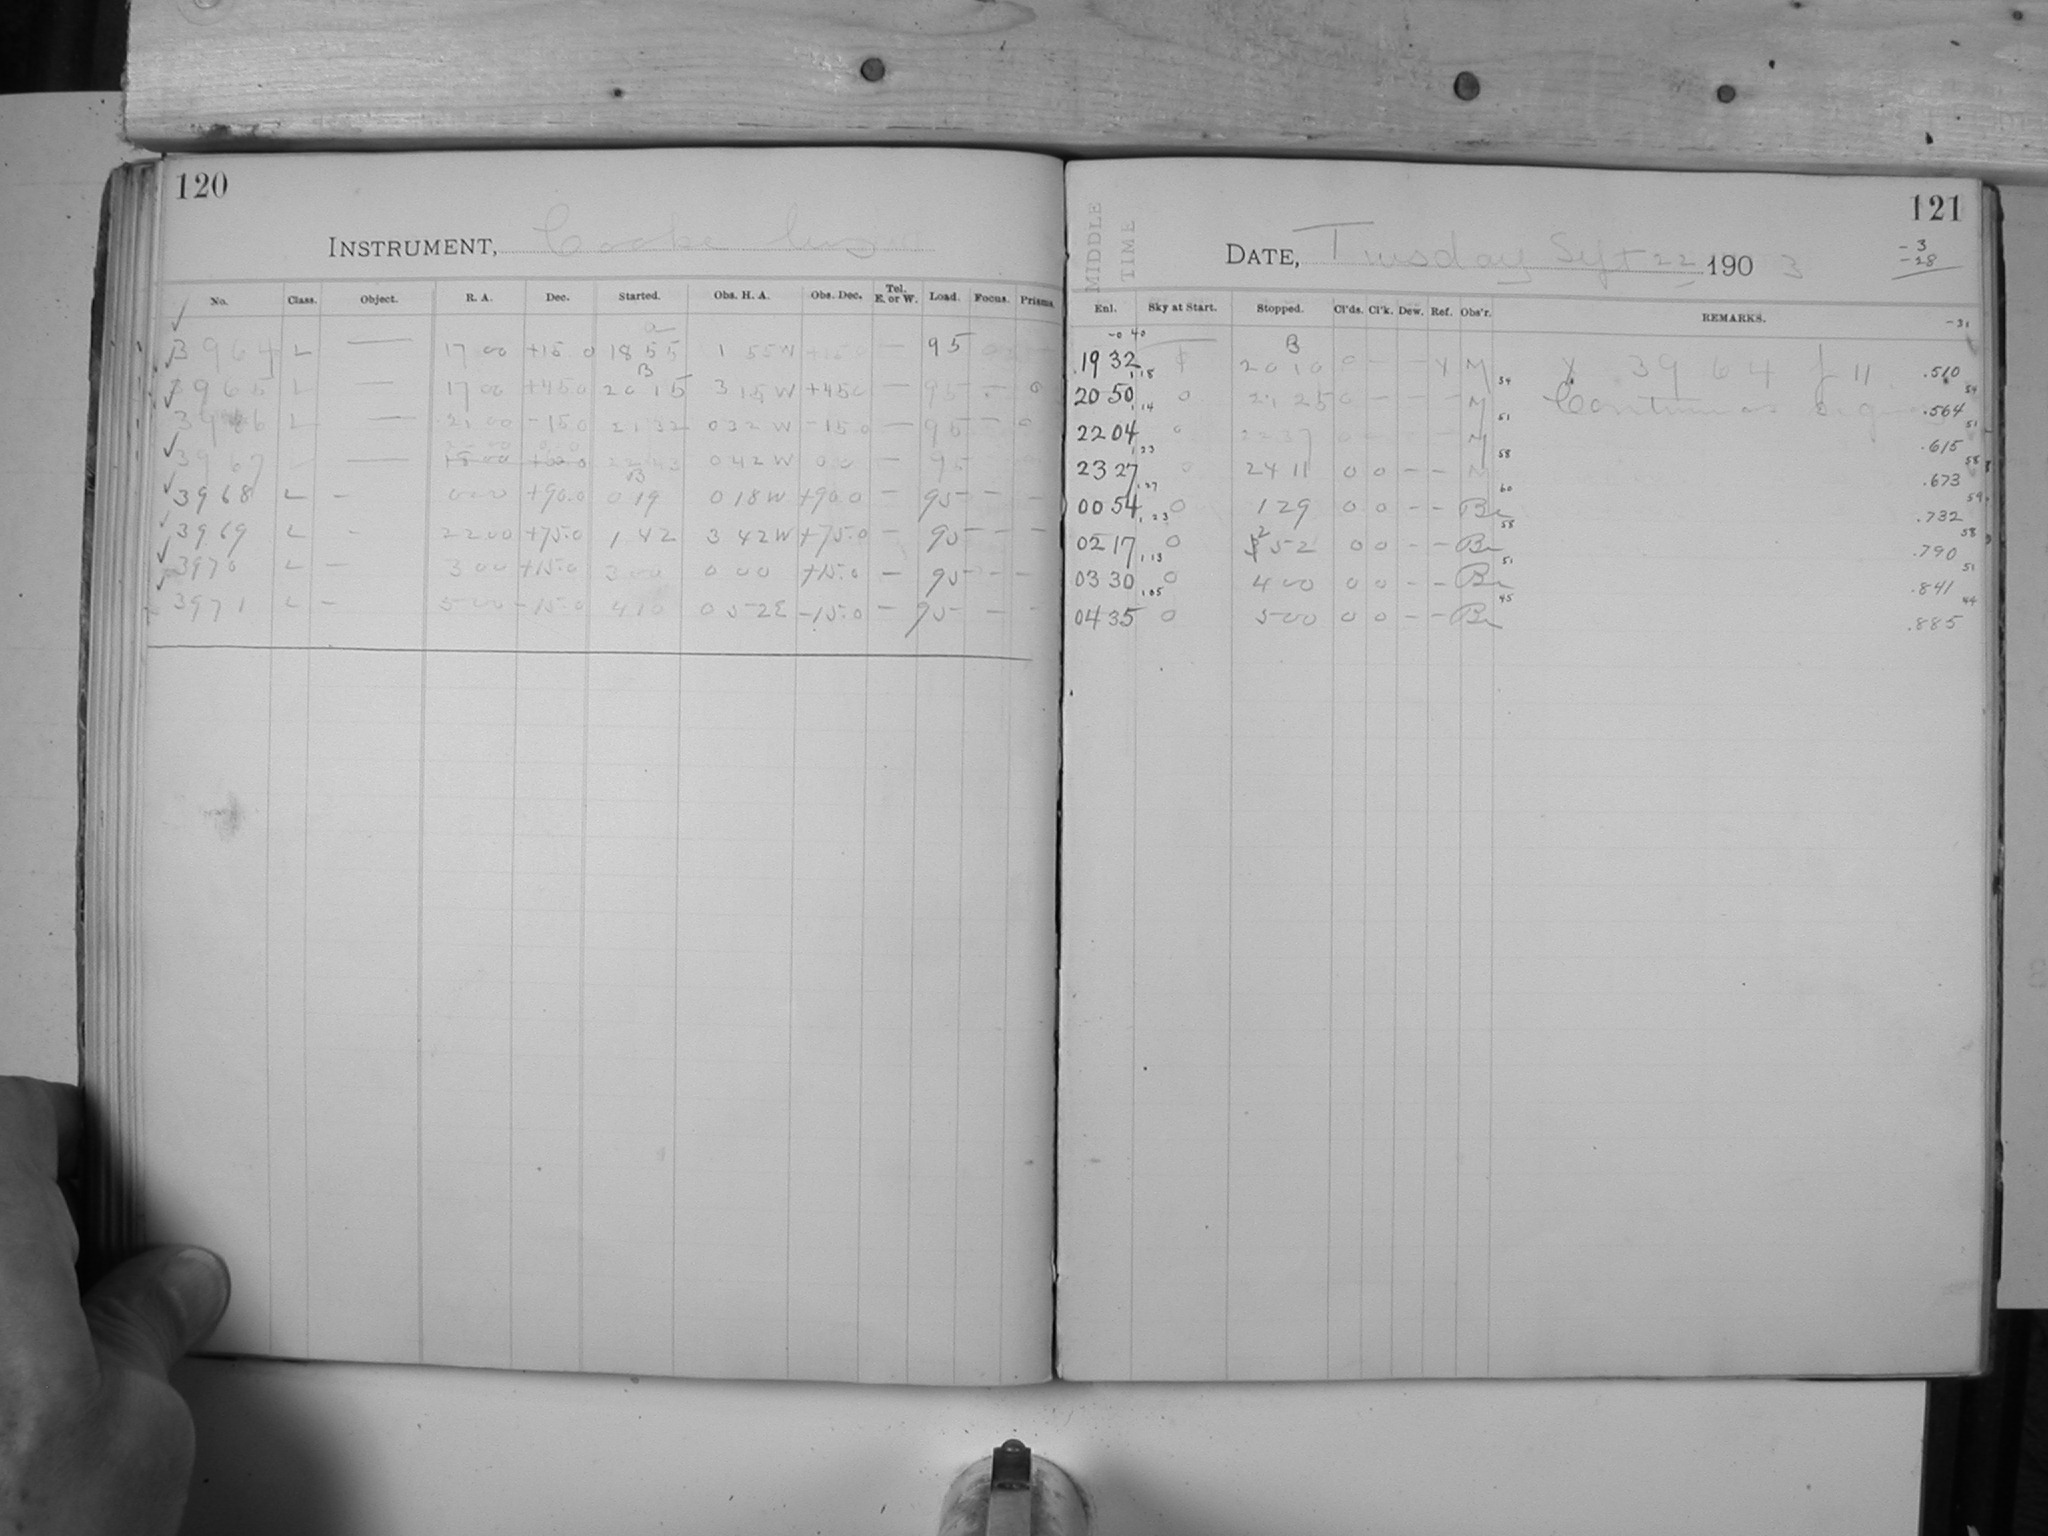 120
INSTRUMENT, Cooke lens
No. Class. Object. R. A. Dec. Started. Obs. H. A. Obs. Dec. Tel. E. or W. Load. Focus. Prisms.
a
3964 L — 17 00 +15 0 18 55 1 55 W +15 0 — 95
B
3965 L — 17 00 +45 0 20 15 3 15 W +45 0 — 95 — 0
3966 L — 21 00 -15 0 21 32 0 32 W -15 0 — 95 — 0
3967 — 0 42 W 0 0 — 95
B
3968 L — 0 00 +90.0 0 19 0 18 W +90.0 — 95 — —
3969 L - 22 00 +75.0 1 42 3 42 W +75.0 — 95 — —
3970 L — 3 00 +15.0 3 00 0 00 +15.0 — 95 — —
3971 L — 5 00 -15.0 4 10 0 52 E -15.0 — 95 — —
121
MIDDLE TIME
DATE, Tuesday Sept 22 1903
-3
-28
-31
Enl. Sky at Start. Stopped. Cl'ds. Cl'k. Dew. Ref. Obs'r. REMARKS.
-0 40
B
19 32 20 10 0 — — X M X 3964 f 11 .510
1,18 54 54
20 50 0 21 25 0 — — — M Continuous .564
1,14 51 51
22 04 0 22 37 0 — — — M .615
1,23 58 58
23 27 0 24 11 0 0 — — M .673
1,27 60 59
00 54 0 1 29 0 0 — — Br .732
1,23 58 58
02 17 0 2 52 0 0 — — Br .790
1,13 51 51
03 30 0 4 00 0 0 — — Br .841
1,05 45 44
04 35 0 5 00 0 0 — — Br .885